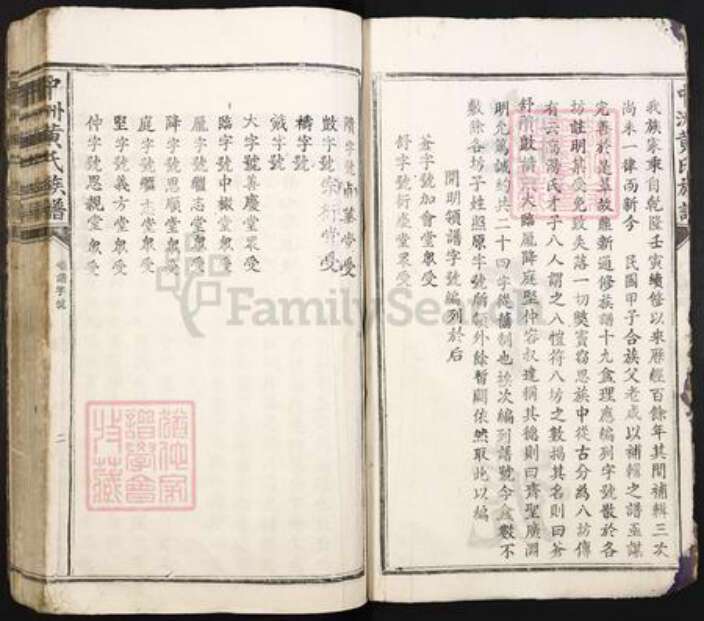 我族家乘自乾隆壬寅續修以來歷經百餘年其間補輯三次
尚未一律而新今 民國甲子合族父老咸以補輯之譜亟謀
完善於是革故鼎新通修族譜十九盒理應編列字號散於各
坊註明某受免致失落一切弊竇竊思族中從古分為八坊傳
有云高陽氏才子八人謂之八愷符八坊之數揭其名則曰蒼
舒隤敳檮戭大臨尨降庭堅仲容叔達稱其德則曰齊聖廣淵
明允篤誠約共二十四字從舊制也挨次編列譜號今盒數不
敷除各坊子姓照原字號所領外餘暫闕依然取此以編
開明領譜字號編列於后
蒼字號加會堂眾受
舒字號衍慶堂眾受
隤字號
敳字號
檮字號
戭字號
大字號善慶堂眾受
臨字號中椒堂眾受
尨字號繼志堂眾受
降字號思順堂眾受
庭字號繼志堂眾受
堅字號義方堂眾受
仲字號思親堂眾受
中洲黃氏族譜
領譜字號
二
中洲黃氏族譜
FamilySearch
譜學會